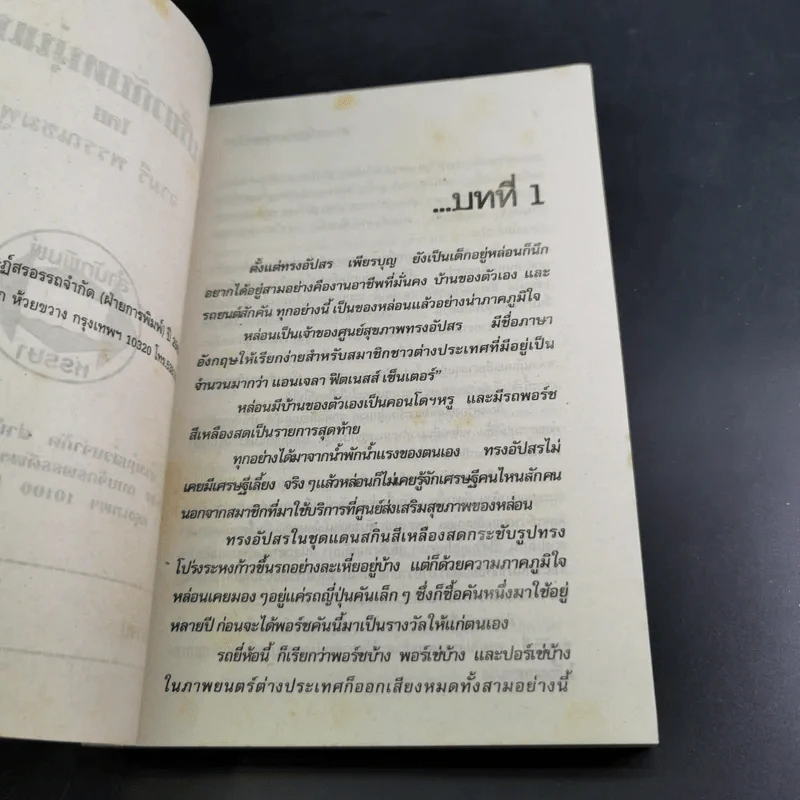 ฏ์สรอรรถจำกัด (ฝ่ายการพิมพ์) ปี
ห้วยขวาง กรุงเทพฯ 10320 โทร.
...บทที่ 1
ตั้งแต่ทรงอัปสร เพียรบุญ ยังเป็นเด็กอยู่หล่อนก็นึก
อยากได้อยู่สามอย่างคืองานอาชีพที่มั่นคง บ้านของตัวเอง และ
รถยนต์สักคัน ทุกอย่างนี้ เป็นของหล่อนแล้วอย่างน่าภาคภูมิใจ
หล่อนเป็นเจ้าของศูนย์สุขภาพทรงอัปสร มีชื่อภาษา
อังกฤษให้เรียกง่ายสำหรับสมาชิกชาวต่างประเทศที่มีอยู่เป็น
จำนวนมากว่า แอนเจลา ฟิตเนสส์ เซ็นเตอร์”
หล่อนมีบ้านของตัวเองเป็นคอนโดฯหรู และมีรถพอร์ช
สีเหลืองสดเป็นรายการสุดท้าย
ทุกอย่างได้มาจากน้ำพักน้ำแรงของตนเอง ทรงอัปสรไม่
เคยมีเศรษฐีเลี้ยง จริงๆแล้วหล่อนก็ไม่เคยรู้จักเศรษฐีคนไหนสักคน
นอกจากสมาชิกที่มาใช้บริการที่ศูนย์ส่งเสริมสุขภาพของหล่อน
ทรงอัปสรในชุดแดนสกินสีเหลืองสดกระชับรูปทรง
โปร่งระหงก้าวขึ้นรถอย่างละเหี่ยอยู่บ้าง แต่ก็ด้วยความภาคภูมิใจ
หล่อนเคยมอง ๆอยู่แค่รถญี่ปุ่นคันเล็ก ๆ ซึ่งก็ซื้อคันหนึ่งมาใช้อยู่
หลายปี ก่อนจะได้พอร์ชคันนี้มาเป็นรางวัลให้แก่ตนเอง
รถยี่ห้อนี้ ก็เรียกว่าพอร์ชบ้าง พอร์เช่บ้าง และปอร์เช่บ้าง
ในภาพยนตร์ต่างประเทศก็ออกเสียงหมดทั้งสามอย่างนี้